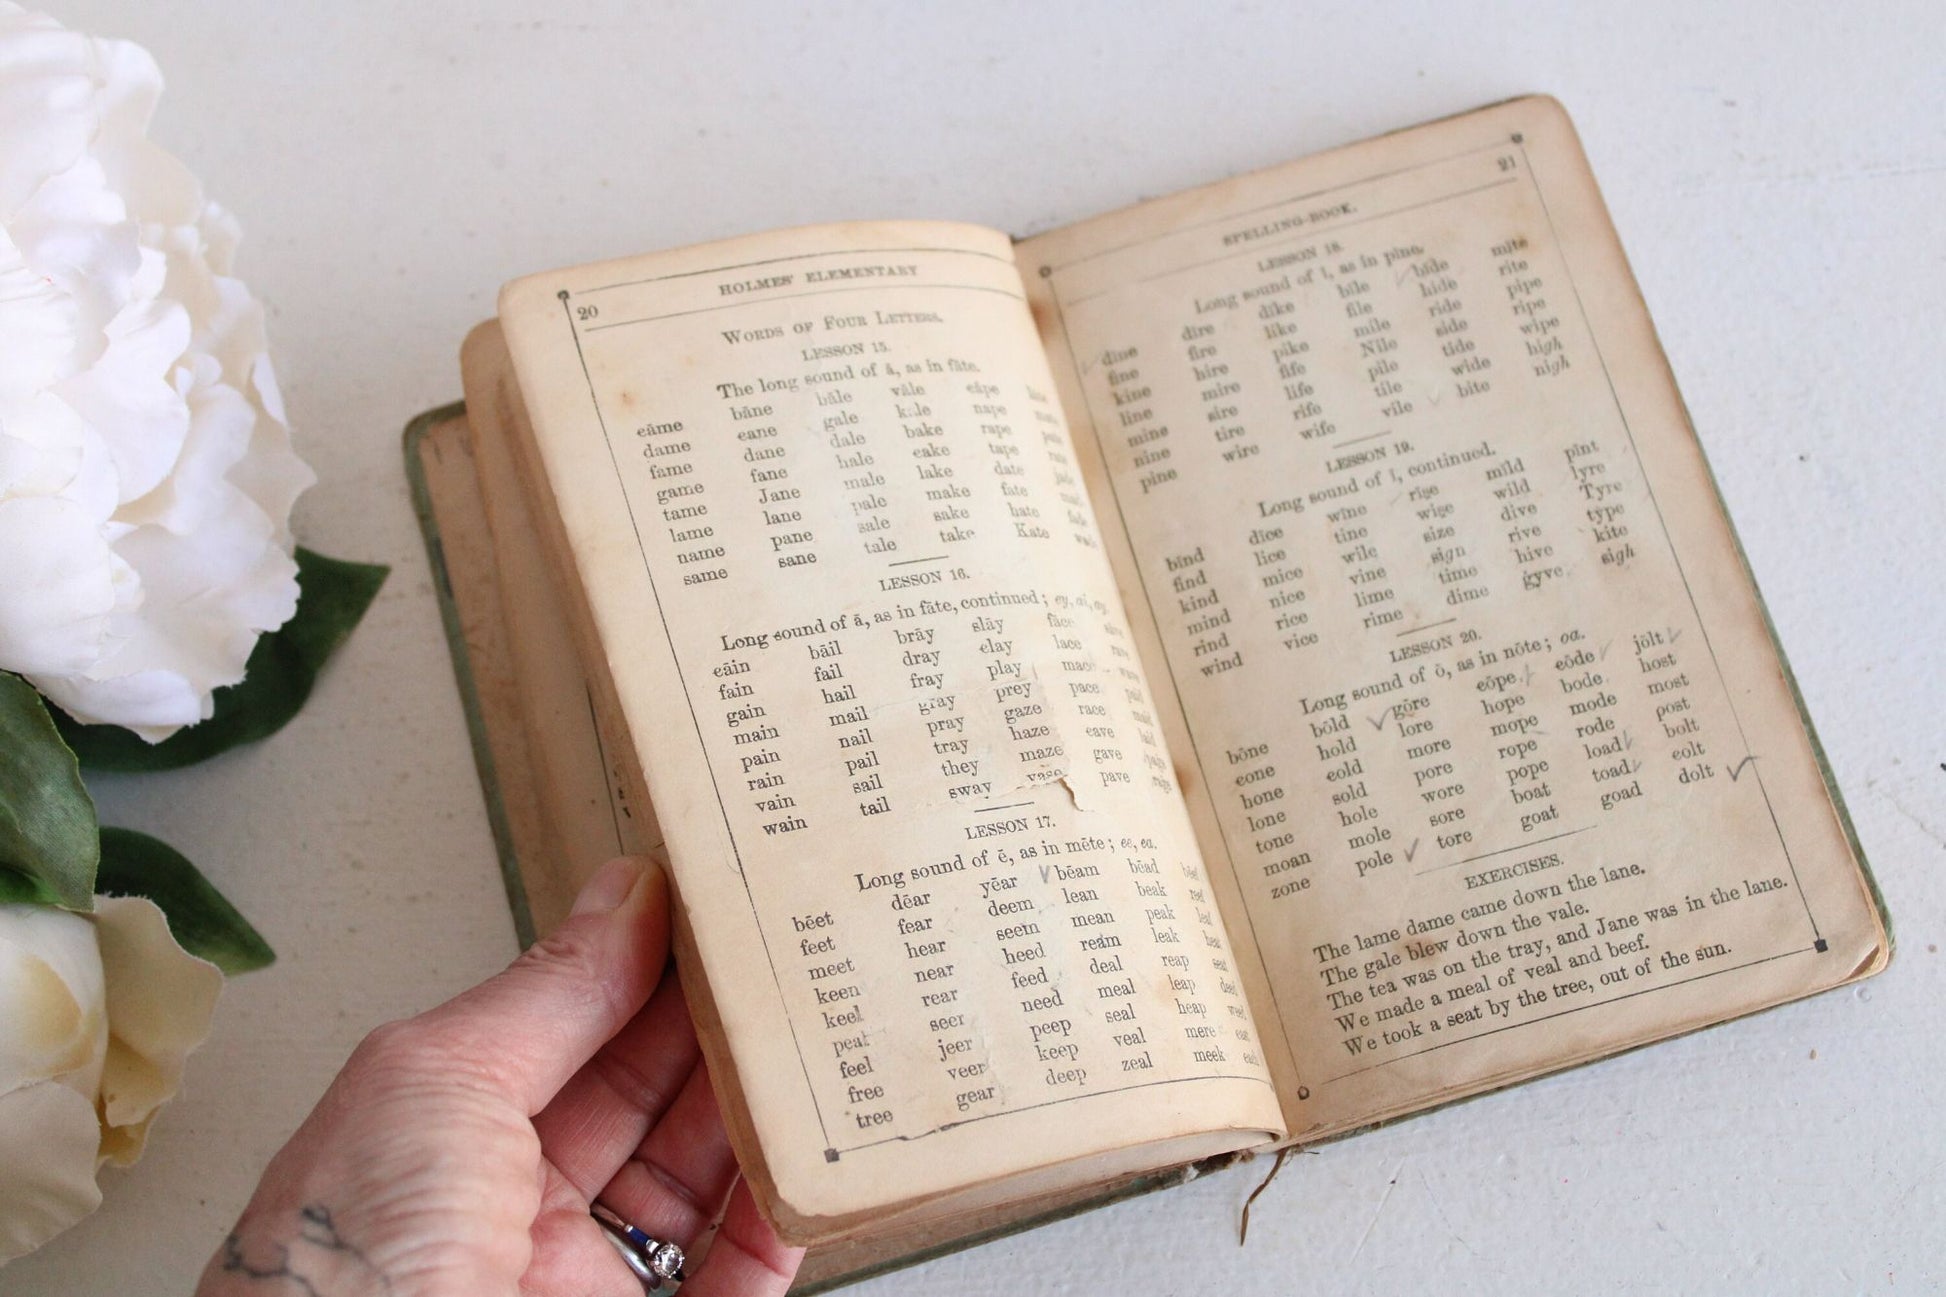 20
HOLMES' ELEMENTARY
WORDS OF FOUR LETTERS.
LESSON 15.
The long sound of ā, as in fāte.
cāme bāne bāle vāle cāpe
dame cane gale nape
fame dane dale bake rape
game fane hale cake tape
tame Jane male lake date
lame lane pale make fate
name pane sale sake hate
same sane tale take Kate
LESSON 16.
Long sound of ā, as in fāte, continued; ey, ai, ay.
cāin bāil brāy slāy fāce
fain fail dray clay lace
gain hail fray play mace
main mail gray prey pace
pain nail pray gaze race
rain pail tray haze cave
vain sail they maze gave
wain tail sway vase pave
LESSON 17.
Long sound of ē, as in mēte; ee, ea.
bēet dēar yēar bēam bēad
feet fear deem lean beak reef
meet hear seem mean peak leaf
keen near heed ream leak
keel rear feed deal reap seat
peat seer need meal leap
feel jeer peep seal heap
free veer keep veal mere
tree gear deep zeal meek
SPELLING-BOOK.
21
LESSON 18.
Long sound of ī, as in pīne.
dīne dīre dīke bīle bīde mīte
fine fire like file hide rite
kine hire pike mile ride pipe
line mire fife Nile side ripe
mine sire life pile tide wipe
nine tire rife tile wide high
pine wire wife vile bite nigh
LESSON 19.
Long sound of ī, continued.
bīnd dīce wīne rīse mīld pīnt
find lice tine wise wild lyre
kind mice wile size dive Tyre
mind nice vine sign rive type
rind rice lime time hive kite
wind vice rime dime gyve sigh
LESSON 20.
Long sound of ō, as in nōte; oa.
bōne bōld gōre cōpe cōde jōlt
cone hold lore hope bode host
hone cold more mope mode most
lone sold pore rope rode post
tone hole wore pope load bolt
moan mole sore boat toad colt
zone pole tore goat goad dolt
EXERCISES.
The lame dame came down the lane.
The gale blew down the vale.
The tea was on the tray, and Jane was in the lane.
We made a meal of veal and beef.
We took a seat by the tree, out of the sun.